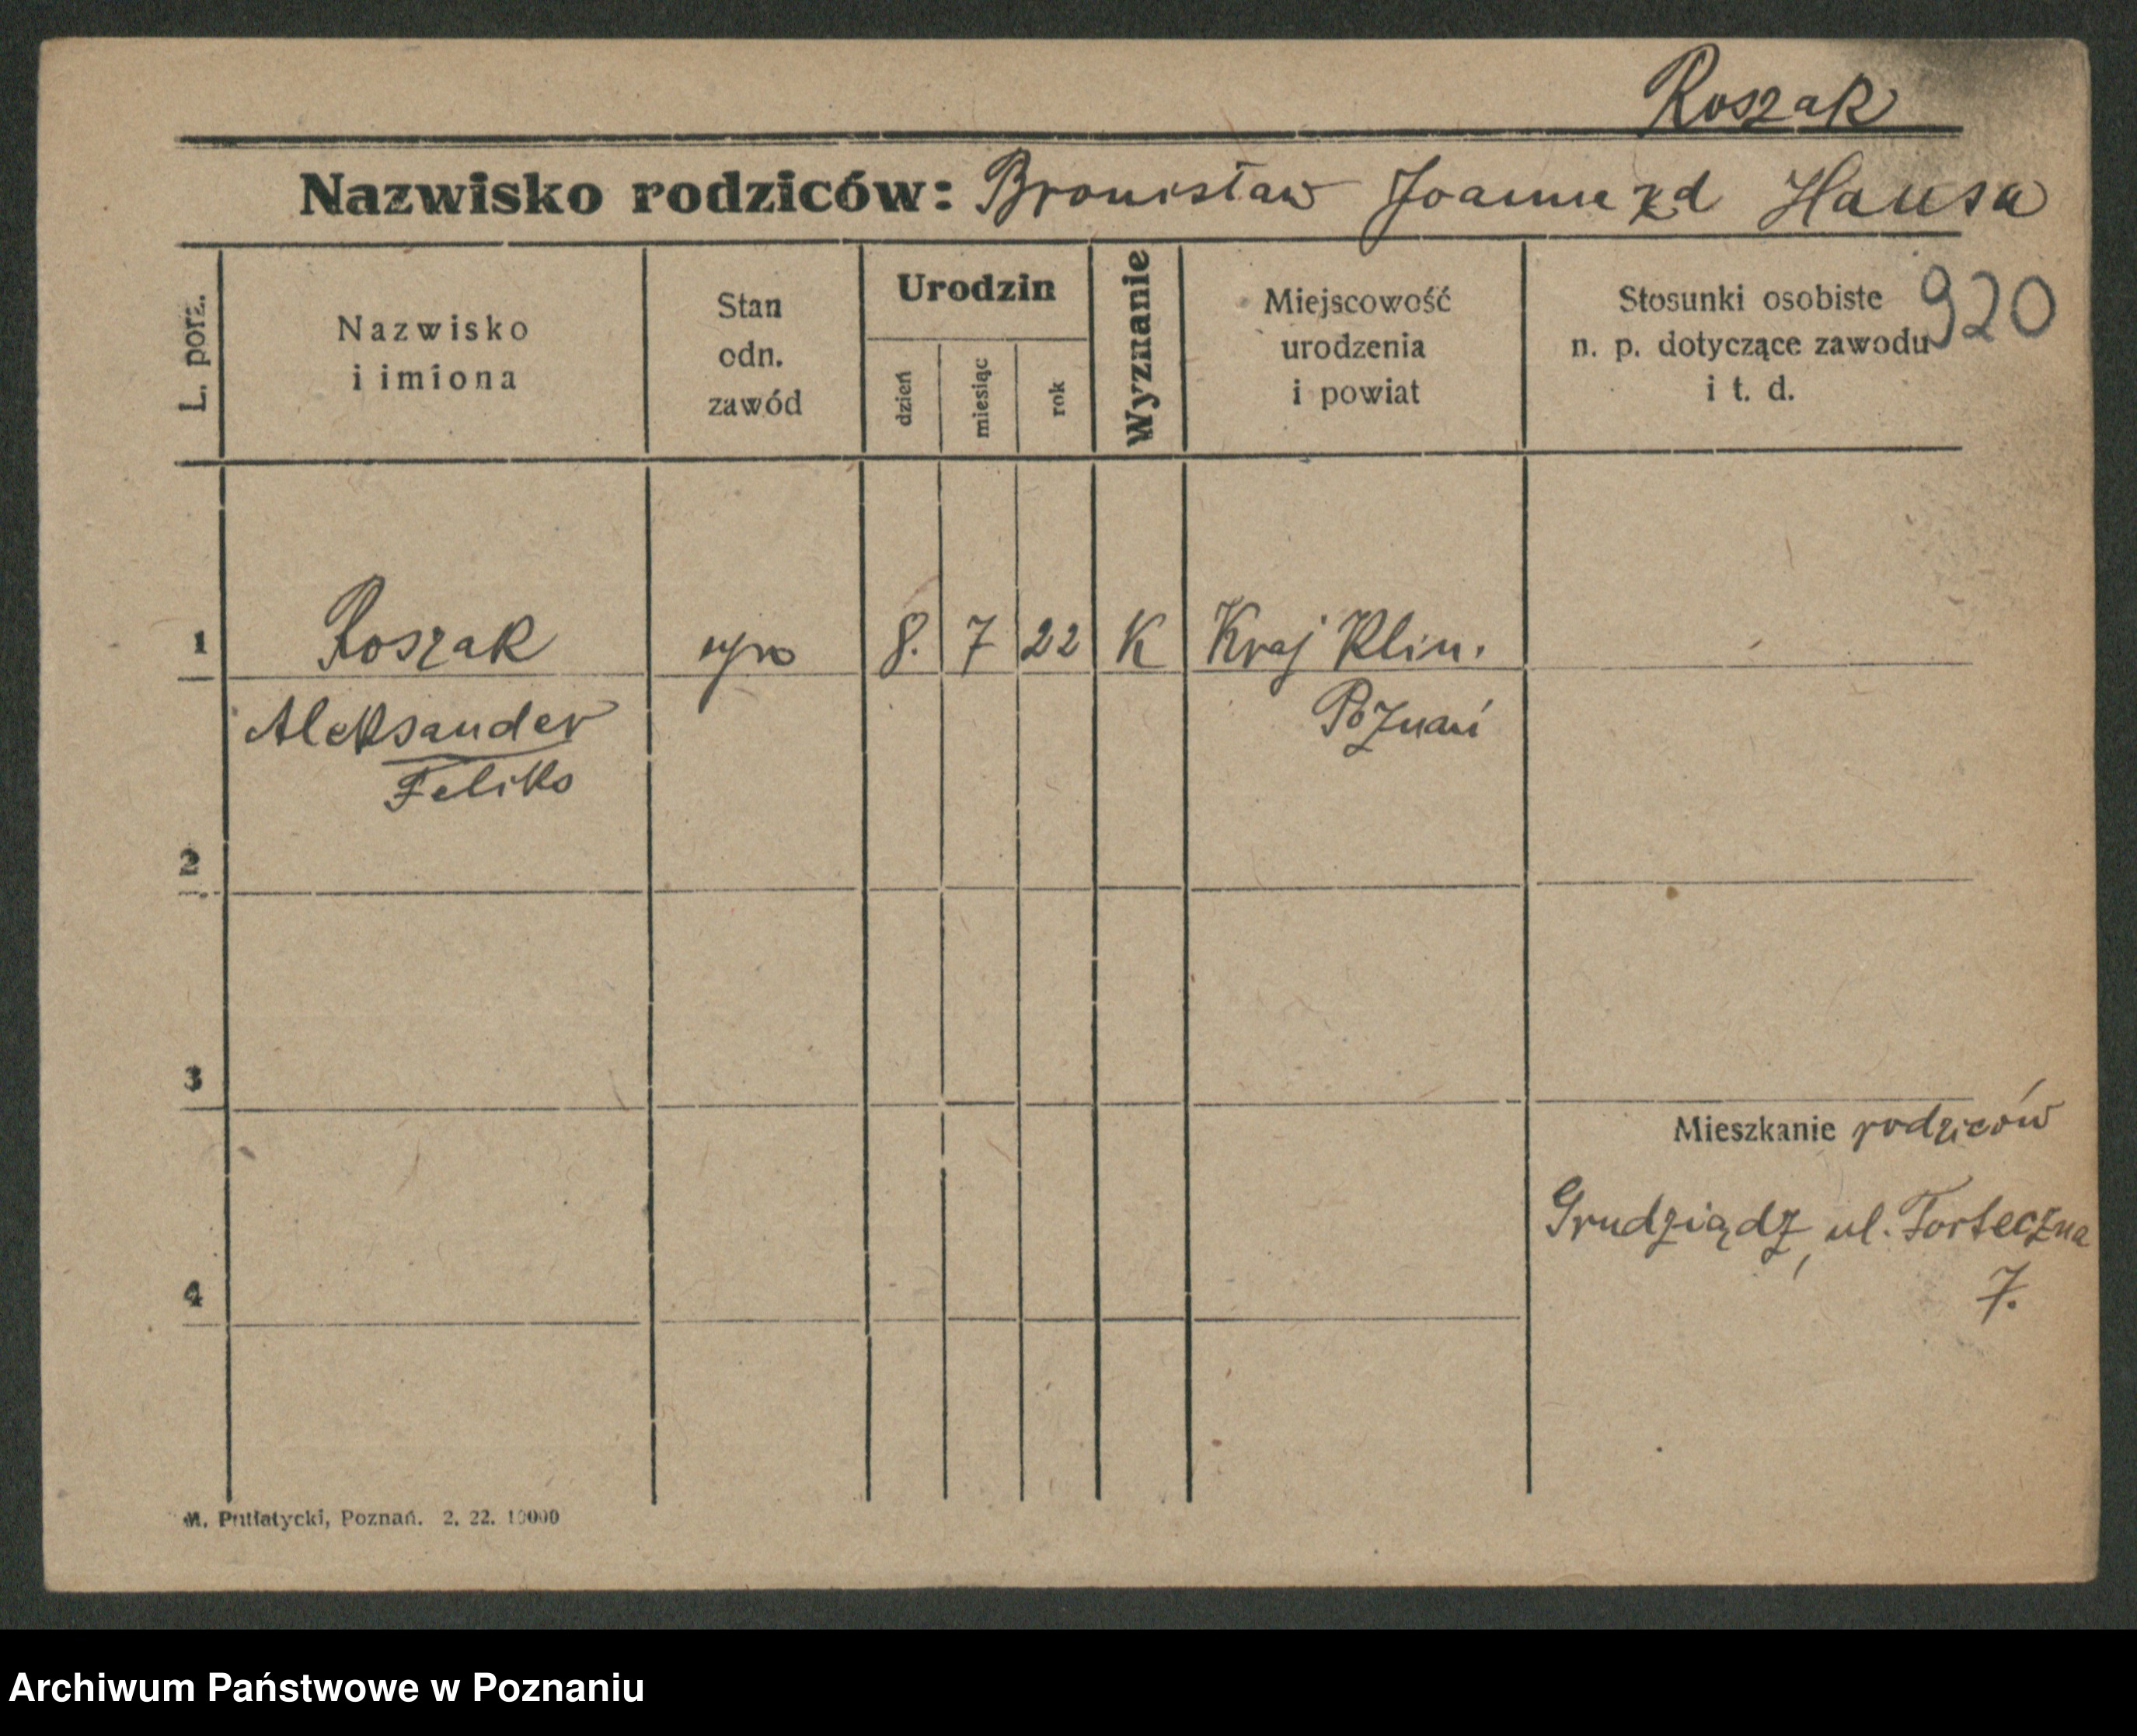 Roszak
Nazwisko rodziców: Bronisław Joanna zd Hausa
920
L. porz.
Nazwisko
i imiona
Stan
odn.
zawód
Urodzin
dzień
miesiąc
rok
Wyznanie
Miejscowość
urodzenia
i powiat
Stosunki osobiste
n. p. dotyczące zawodu
i t. d.
1 Roszak 8. 7 22 K Kraj Klin.
Aleksander Poznań
Feliks
2
3
Mieszkanie rodziców
Grudziądz, ul. Forteczna
7.
4
M. Putiatycki, Poznań. 2. 22. 10000
Archiwum Państwowe w Poznaniu